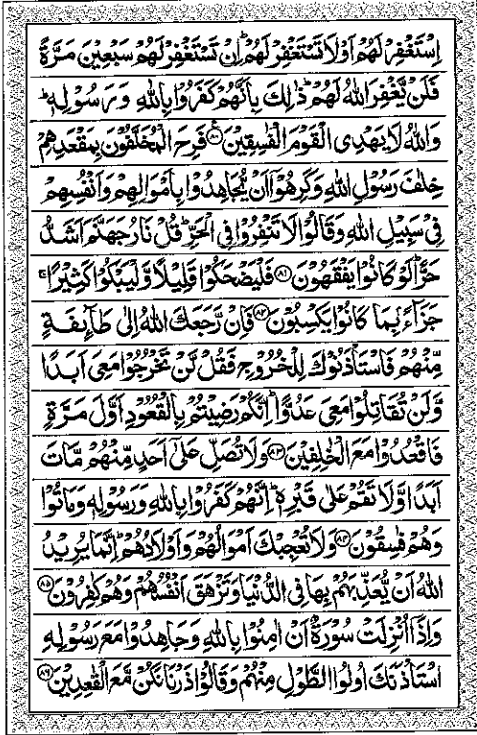 اِسْتَغْفِرْ لَهُمْ اَوْ لَا تَسْتَغْفِرْ لَهُمْ ؕ اِنْ تَسْتَغْفِرْ لَهُمْ سَبْعِیْنَ مَرَّةً
فَلَنْ یَّغْفِرَ اللّٰهُ لَهُمْ ؕ ذٰلِكَ بِاَنَّهُمْ كَفَرُوْا بِاللّٰهِ وَرَسُوْلِهٖ ؕ
وَاللّٰهُ لَا یَهْدِی الْقَوْمَ الْفٰسِقِیْنَ ۟﴿۸۰﴾ فَرِحَ الْمُخَلَّفُوْنَ بِمَقْعَدِهِمْ
خِلٰفَ رَسُوْلِ اللّٰهِ وَكَرِهُوْۤا اَنْ یُّجَاهِدُوْا بِاَمْوَالِهِمْ وَاَنْفُسِهِمْ
فِیْ سَبِیْلِ اللّٰهِ وَقَالُوْا لَا تَنْفِرُوْا فِی الْحَرِّ ؕ قُلْ نَارُ جَهَنَّمَ اَشَدُّ
حَرًّا ؕ لَوْ كَانُوْا یَفْقَهُوْنَ ﴿۸۱﴾ فَلْیَضْحَكُوْا قَلِیْلًا وَّلْیَبْكُوْا كَثِیْرًا ۚ
جَزَآءًۢ بِمَا كَانُوْا یَكْسِبُوْنَ ﴿۸۲﴾ فَاِنْ رَّجَعَكَ اللّٰهُ اِلٰی طَآىِٕفَةٍ
مِّنْهُمْ فَاسْتَاْذَنُوْكَ لِلْخُرُوْجِ فَقُلْ لَّنْ تَخْرُجُوْا مَعِیَ اَبَدًا
وَّلَنْ تُقَاتِلُوْا مَعِیَ عَدُوًّا ؕ اِنَّكُمْ رَضِیْتُمْ بِالْقُعُوْدِ اَوَّلَ مَرَّةٍ
فَاقْعُدُوْا مَعَ الْخٰلِفِیْنَ ﴿۸۳﴾ وَلَا تُصَلِّ عَلٰۤی اَحَدٍ مِّنْهُمْ مَّاتَ
اَبَدًا وَّلَا تَقُمْ عَلٰی قَبْرِهٖ ؕ اِنَّهُمْ كَفَرُوْا بِاللّٰهِ وَرَسُوْلِهٖ وَمَاتُوْا
وَهُمْ فٰسِقُوْنَ ﴿۸۴﴾ وَلَا تُعْجِبْكَ اَمْوَالُهُمْ وَاَوْلَادُهُمْ ؕ اِنَّمَا یُرِیْدُ
اللّٰهُ اَنْ یُّعَذِّبَهُمْ بِهَا فِی الدُّنْیَا وَتَزْهَقَ اَنْفُسُهُمْ وَهُمْ كٰفِرُوْنَ ﴿۸۵﴾
وَاِذَاۤ اُنْزِلَتْ سُوْرَةٌ اَنْ اٰمِنُوْا بِاللّٰهِ وَجَاهِدُوْا مَعَ رَسُوْلِهِ
اسْتَاْذَنَكَ اُولُوا الطَّوْلِ مِنْهُمْ وَقَالُوْا ذَرْنَا نَكُنْ مَّعَ الْقٰعِدِیْنَ ﴿۸۶﴾